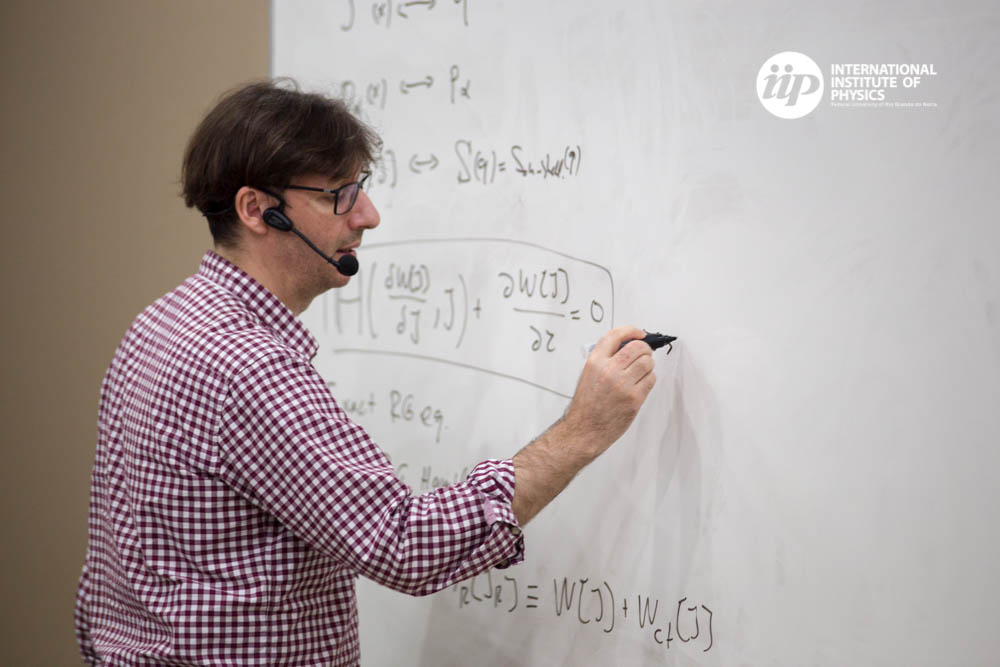 J (x) ⟷ q
P_α(x) ⟷ P_α
⟷ S(q) = S_on-shell(q)
H(δW[J]/δJ, J) + ∂W[J]/∂τ = 0
RG eq.
_R[J_R] ≡ W[J] + W_ct[J]
iip INTERNATIONAL
INSTITUTE OF
PHYSICS
Federal University of Rio Grande do Norte